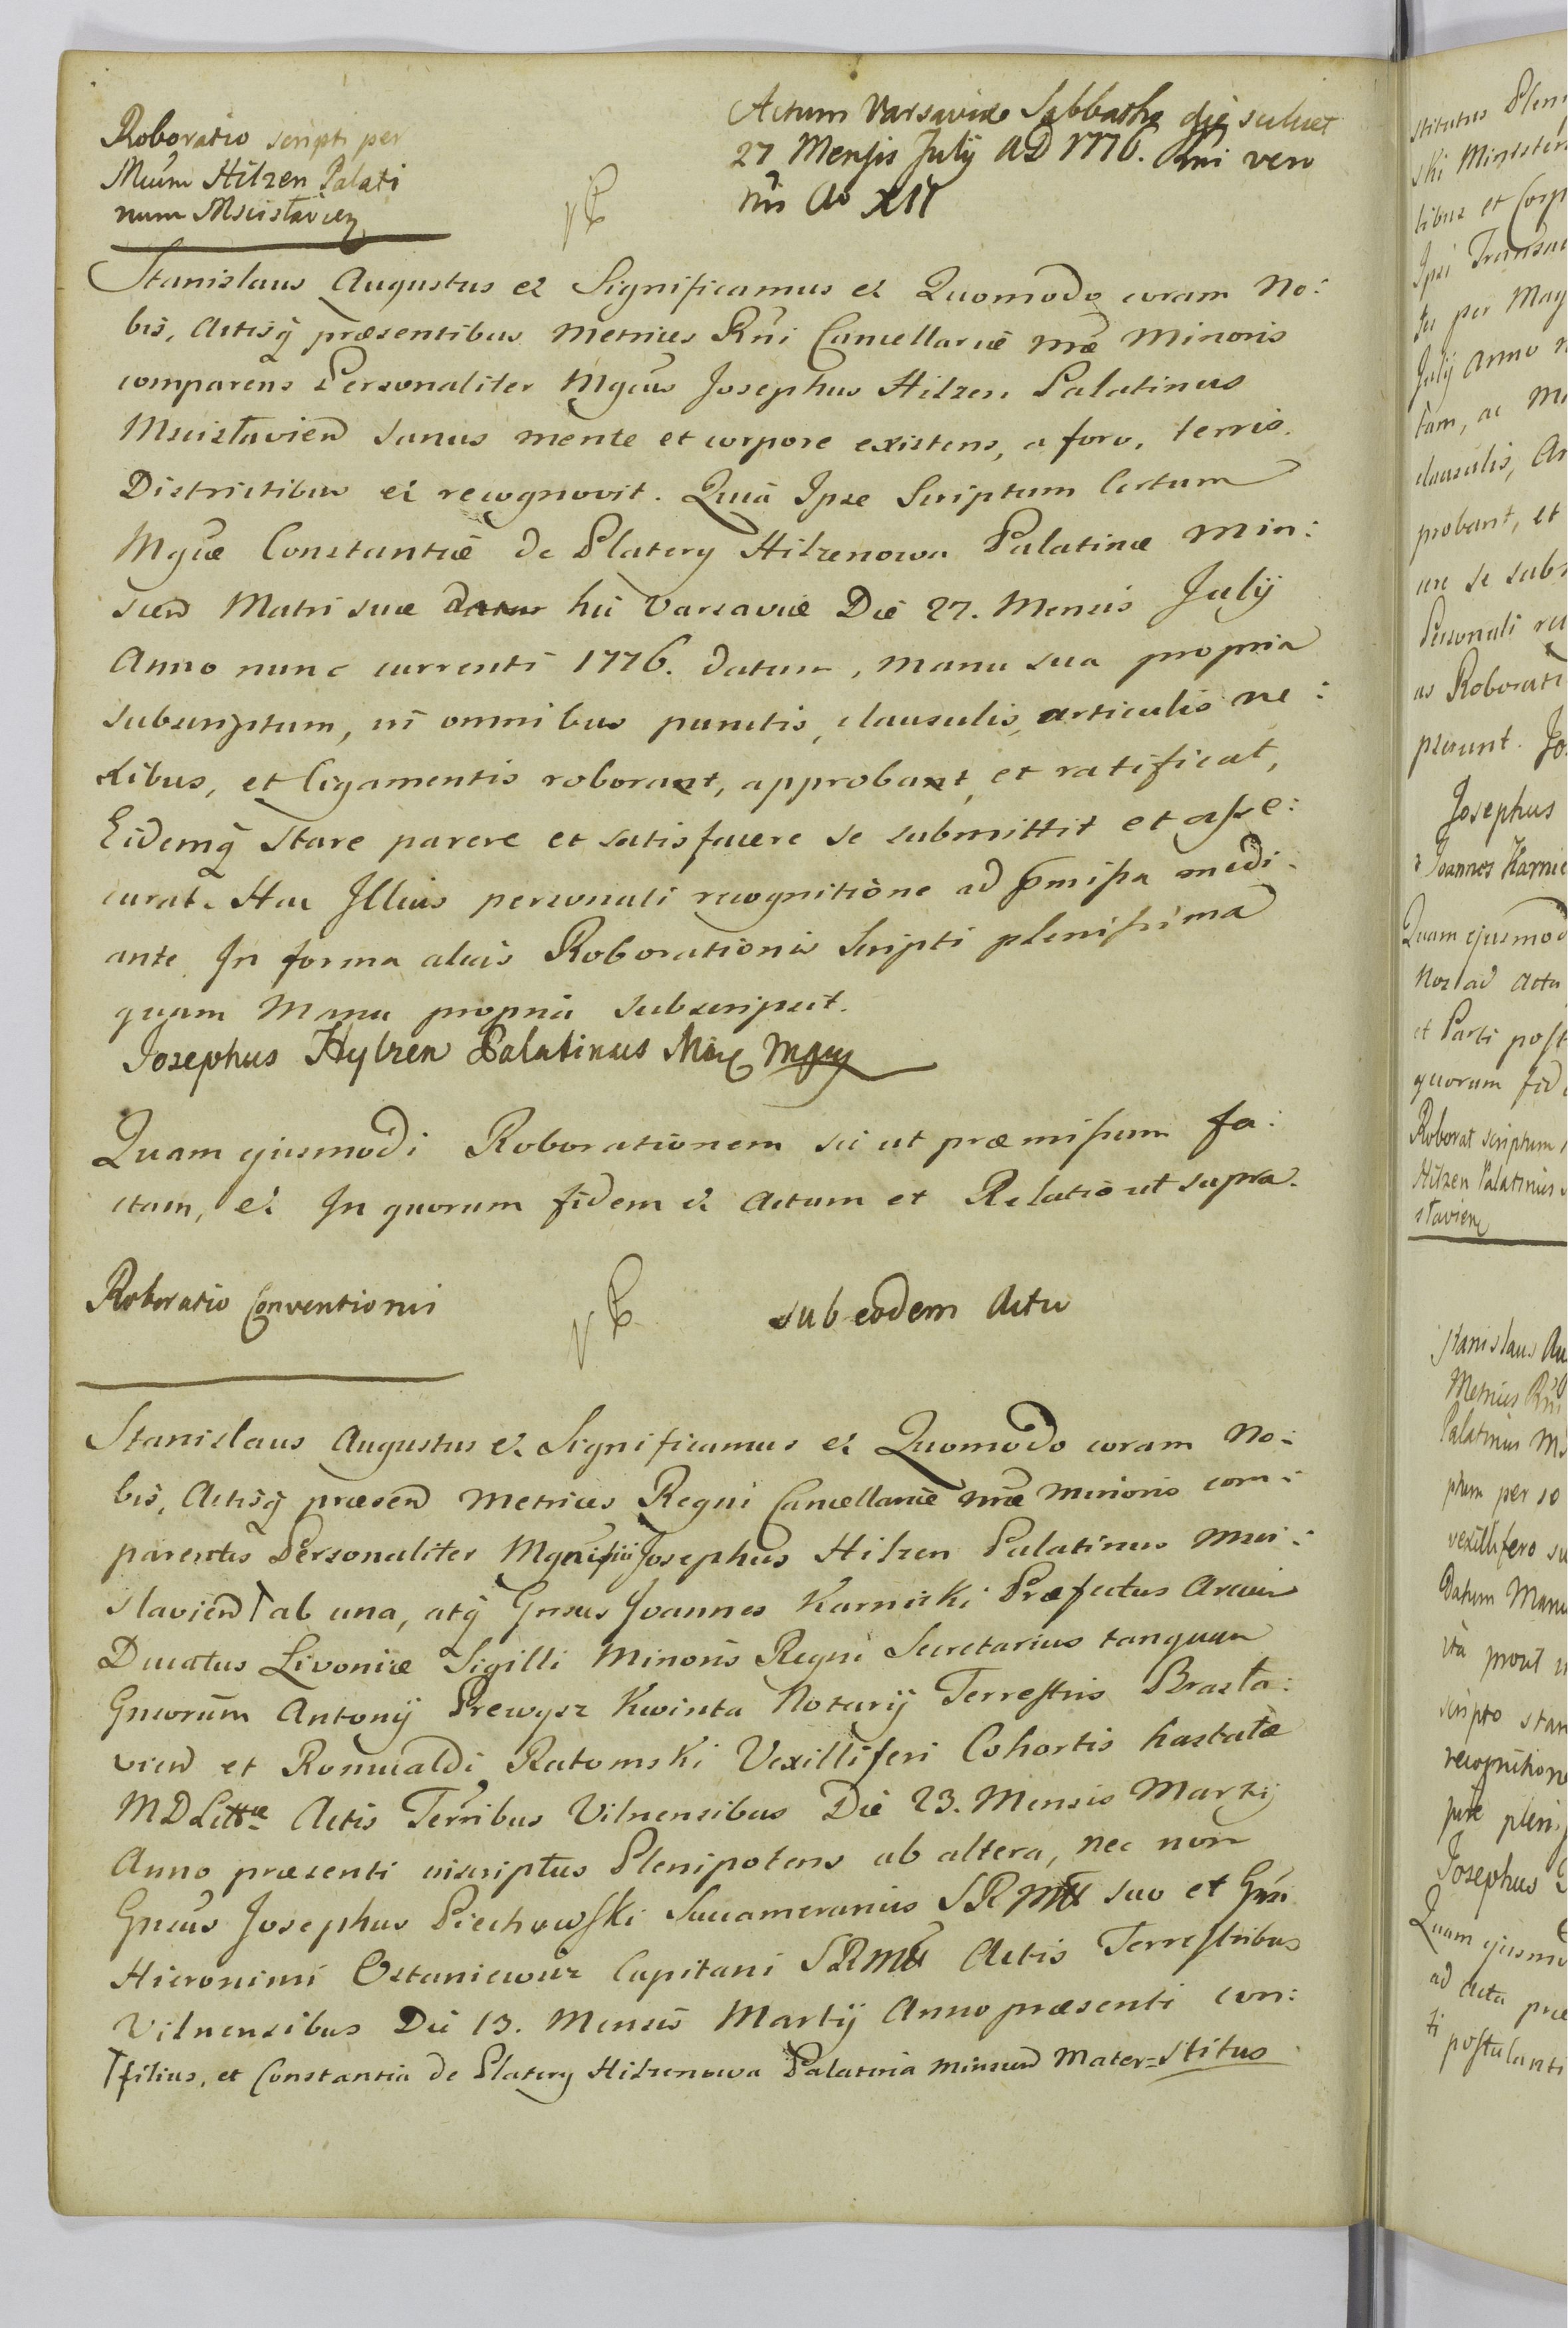 Roboratio scripti per
Mcum Hilzen Palati
num Mscisłavien
Actum Varsaviæ Sabbatho die scilicet
27 Mensis July AD 1776. Rni vero
nri Ao XII
Stanislaus Augustus et Significamus et Quomodo coram No:
bis, Actisq præsentibus Metrices Rni Cancellariæ nræ Minoris
comparens Personaliter Mgcus Josephus Hilzen Palatinus
Mscisłavien sanus mente et corpore existens, a foro, terris.
Districtibus et recognovit. Quia Ipse Scriptum Certum
Mgcæ Constantiæ de Platery Hilzenowa Palatinæ Min:
scen Matri suæ hic Varsaviæ Die 27. Mensis July
Anno nunc currenti 1776. datum, manu sua propria
subscriptum, in omnibus punctis, clausulis, articulis ne:
xibus, et ligamentis roborat, approbat, et ratificat,
Eidemq stare parere et satisfacere se submittit et asse:
curat. Hac Illius personali recognitione ad pmissa medi:
ante. In forma alias Roborationis Scripti plenissima
quam Manu propria subscripsit.
Josephus Hylzen Palatinus
Quam ejusmodi Roborationem sic ut præmissum fa:
ctam, et In quorum fidem et Actum et Relatio ut supra.
Roboratio Conventionis
sub eodem Actu
Stanislaus Augustus et Significamus et Quomodo coram No:
bis, Actisq præsen Metrices Regni Cancellariæ nræ Minoris com:
parentes Personaliter Josephus Hilzen Palatinus Msci:
slavien ab una, atq Gnsus Joannes Karnicki Præfectus Arcium
Ducatus Livoniæ Sigilli Minoris Regni Secretarius tanquam
Gnsorum Antonij Prewysz Kwinta Notarij Terrestris Brasła:
vien et Romualdi Ratomski Vexilliferi Cohortis hastatæ
MDLittæ Actis Terribus Vilnensibus Die 23. Mensis Martij
Anno præsenti inscriptus Plenipotens ab altera, nec non
Gnsus Josephus Piechowski Succamerarius SRM suo et Gnsi
Hieronimi Ostaniewicz Capitani SRM Actis Terrestribus
Vilnensibus Die 13. Mensis Martij Anno præsenti con:
filius, et Constantia de Platery Hilzenowa Palatina Minscen Mater=stitus
stitutus Plen
ski Minister
tibus et Corp
Ipsi Transac
tu per Mag
July Anno n
tam, ac
clausulis, Ar
probant, et
ure se subm
Personali re
as Roborati
pserunt. Jo
Josephus
Joannes Karnic
Quam ejusmod
Nos ad Acta
et Parti post
quorum fid
Roborat scriptum
Hilzen Palatinus
sławien
Stanislaus Au
Metrices Rni
Palatinus Ms
ptum per
vexillifero su
Datum Manu
ita prout
scripto star
recognitione
pse pleni
Josephus
Quam ejusmo
ad Acta præ
ti postulanti